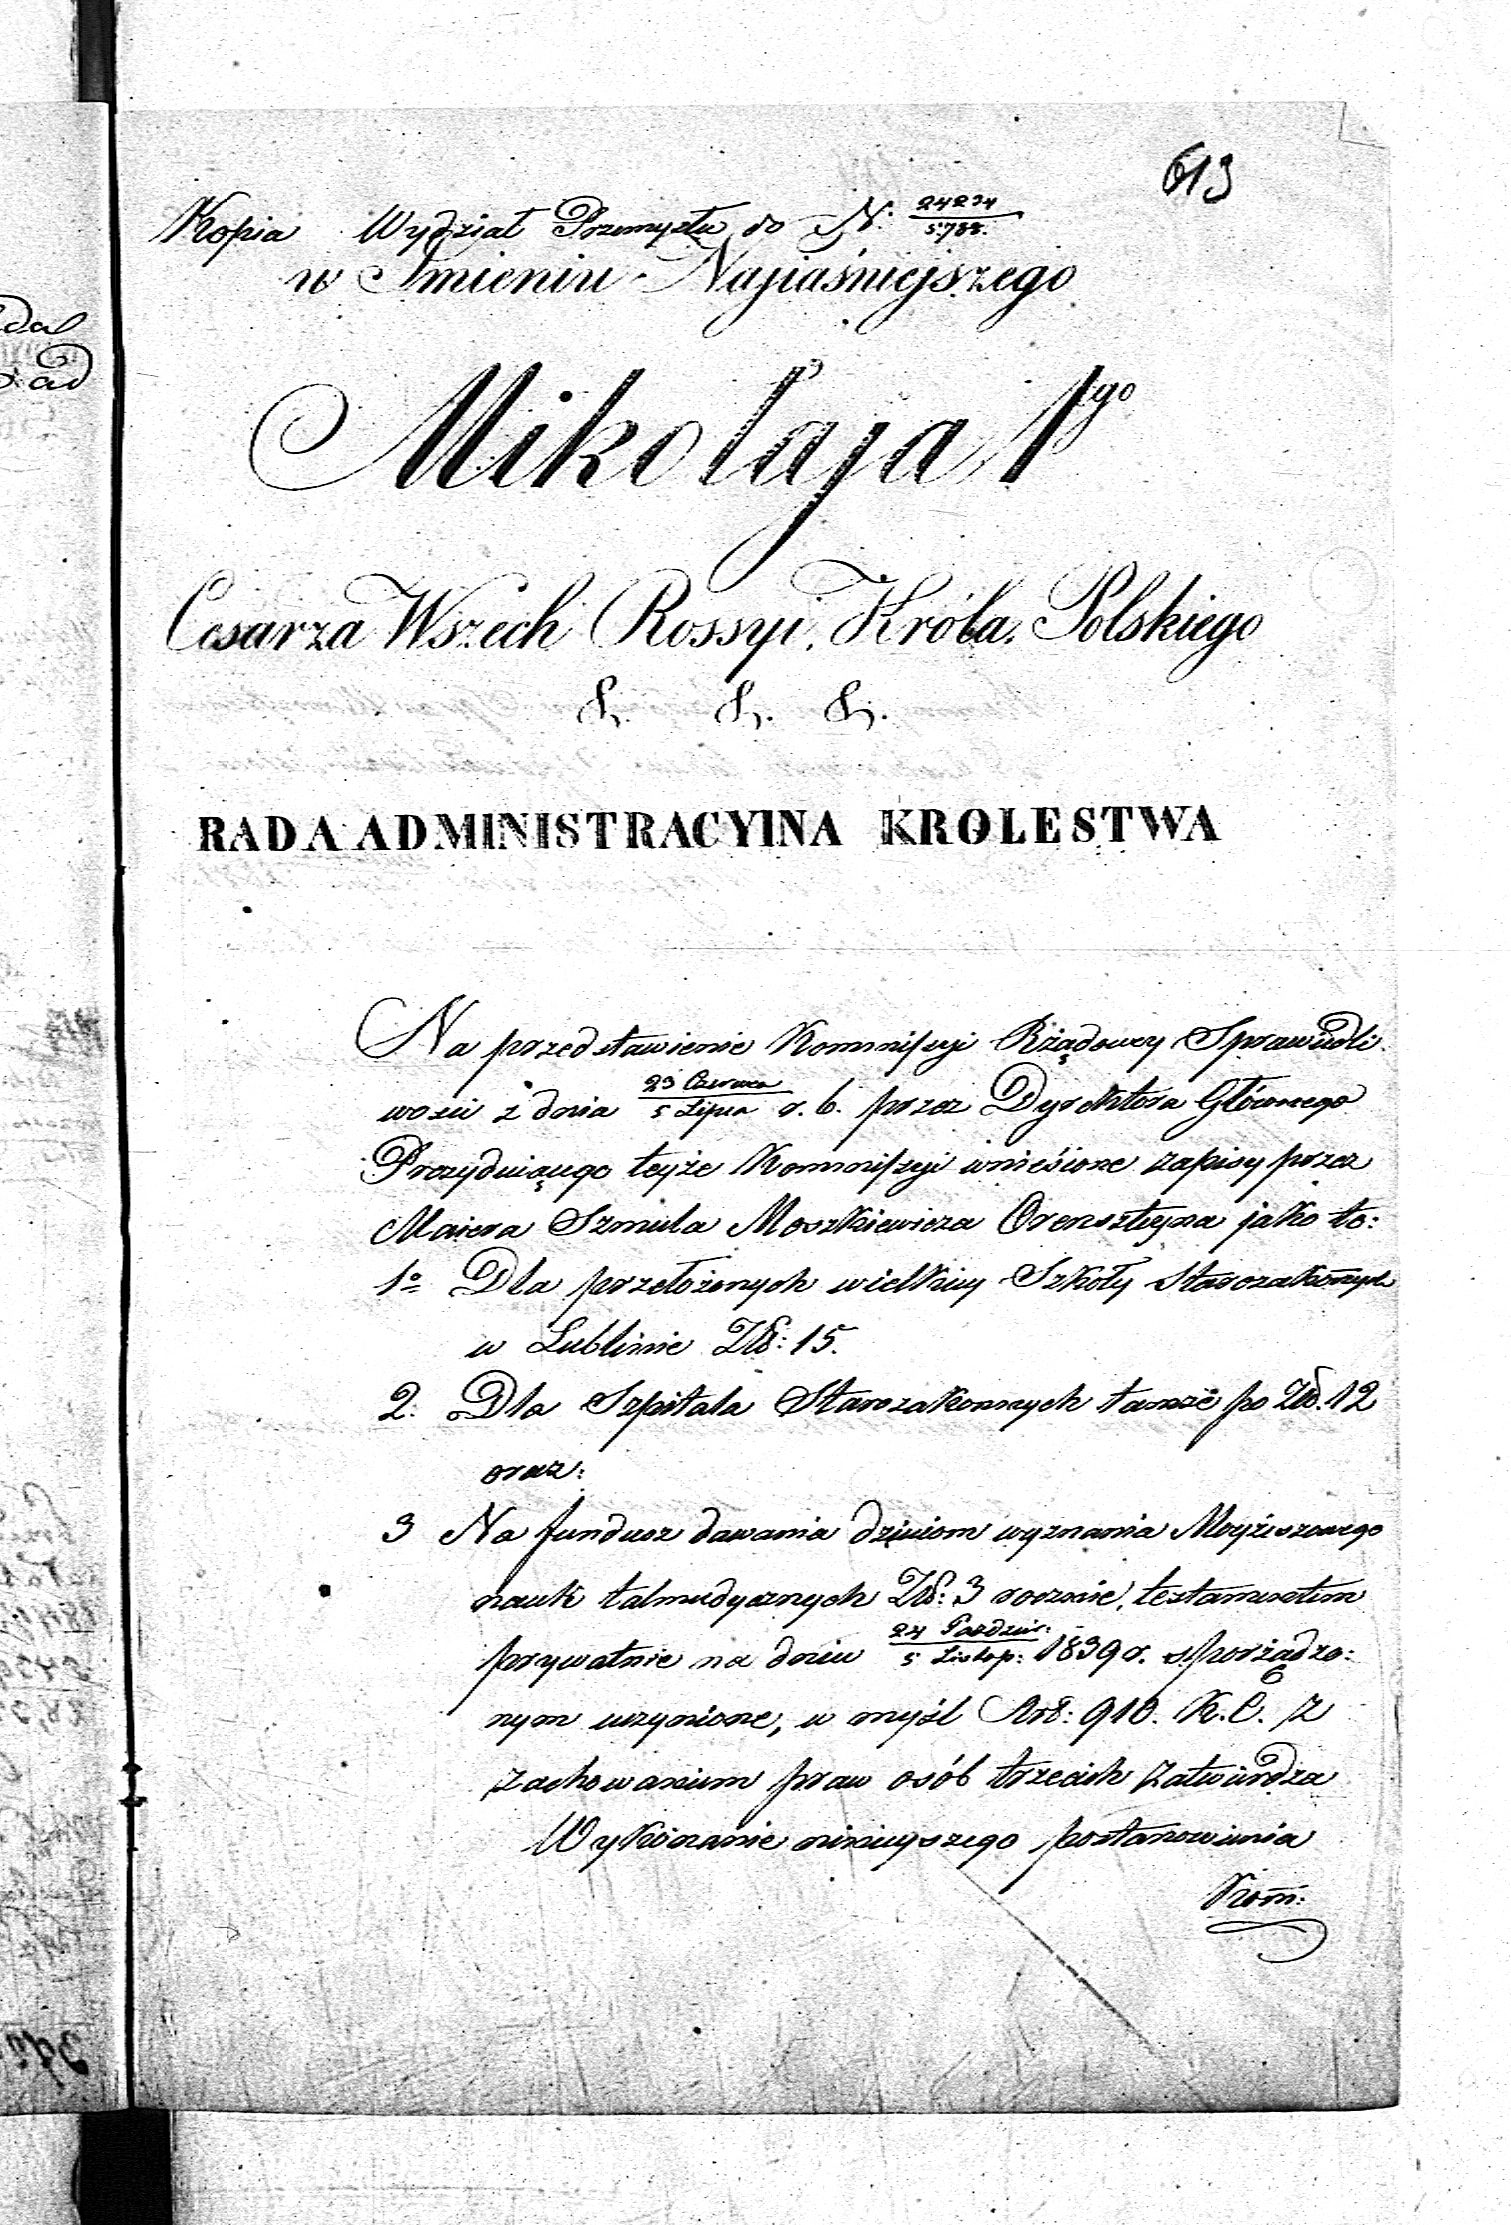 613
Kopia Wydział Przemysłu do N. 24234/5788.
w Imieniu Najiaśniejszego
Mikołaja 1go
Cesarza Wszech Rossyi, Króla Polskiego
&. &. &.
RADA ADMINISTRACYINA KROLESTWA
Na przedstawienie Kommissyi Rządowey Sprawiedli-
wości z dnia 23 Czerwca/5 Lipca r. b. przez Dyrektora Głównego
Prezyduiącego teyże Kommissyi wnieśione zapisy przez
Maiera Szmula Moszkiewicza Orensztyna jako to:
1o Dla przełożonych wielkiey Szkoły Starozakonnych
w Lublinie Zł: 15.
2. Dla Szpitala Starozakonnych tamże po Zł. 12
oraz:
3 Na fundusz dawania dzieciom wyznania Moyżeszowego
nauk talmudycznych Zł: 3 rocznie, testamentem
prywatnie na dniu 24 Paździer:/5 Listop: 1839 r. sporządzo:
nym uczynione, w myśl Art: 910. K. C. z
zachowaniem praw osób trzecich zatwierdza
Wykonanie ninieyszego postanowienia
Kom: